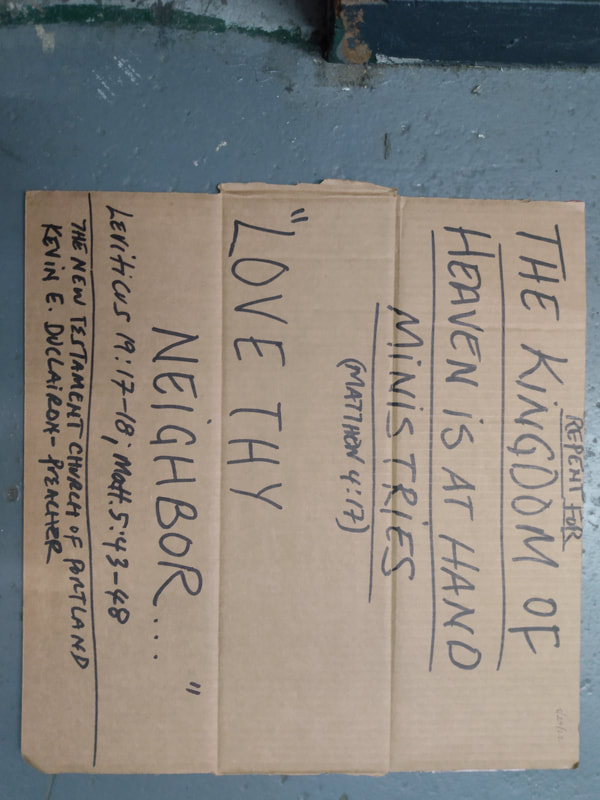 REPENT FOR
THE KINGDOM OF
HEAVEN IS AT HAND
MINISTRIES
(MATTHEW 4:17)
"LOVE THY
NEIGHBOR... "
Leviticus 19:17-18; Matt. 5:43-48
THE NEW TESTAMENT CHURCH OF PORTLAND
KEVIN E. DUCLAIRON- PREACHER